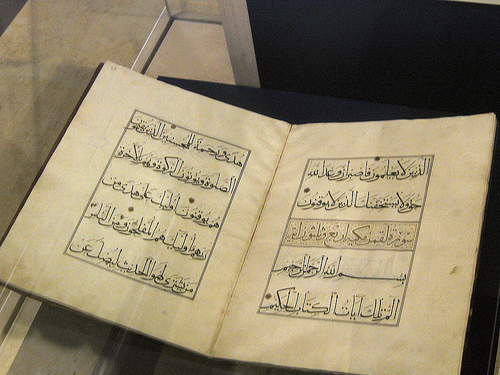 الذين لا يعلمون فاصبر ان وعد الله
حق ولا يستخفنك الذين لا يوقنون
سورة لقمن مكية اربع وثلثون اية
بسم الله الرحمن الرحيم
الم تلك آيات الكتاب الحكيم
هدى ورحمة للمحسنين الذين يقيمون
الصلوة ويؤتون الزكوة وهم بالآخرة
هم يوقنون اولئك على هدى من
ربهم واولئك هم المفلحون ومن الناس
من يشتري لهو الحديث ليضل عن